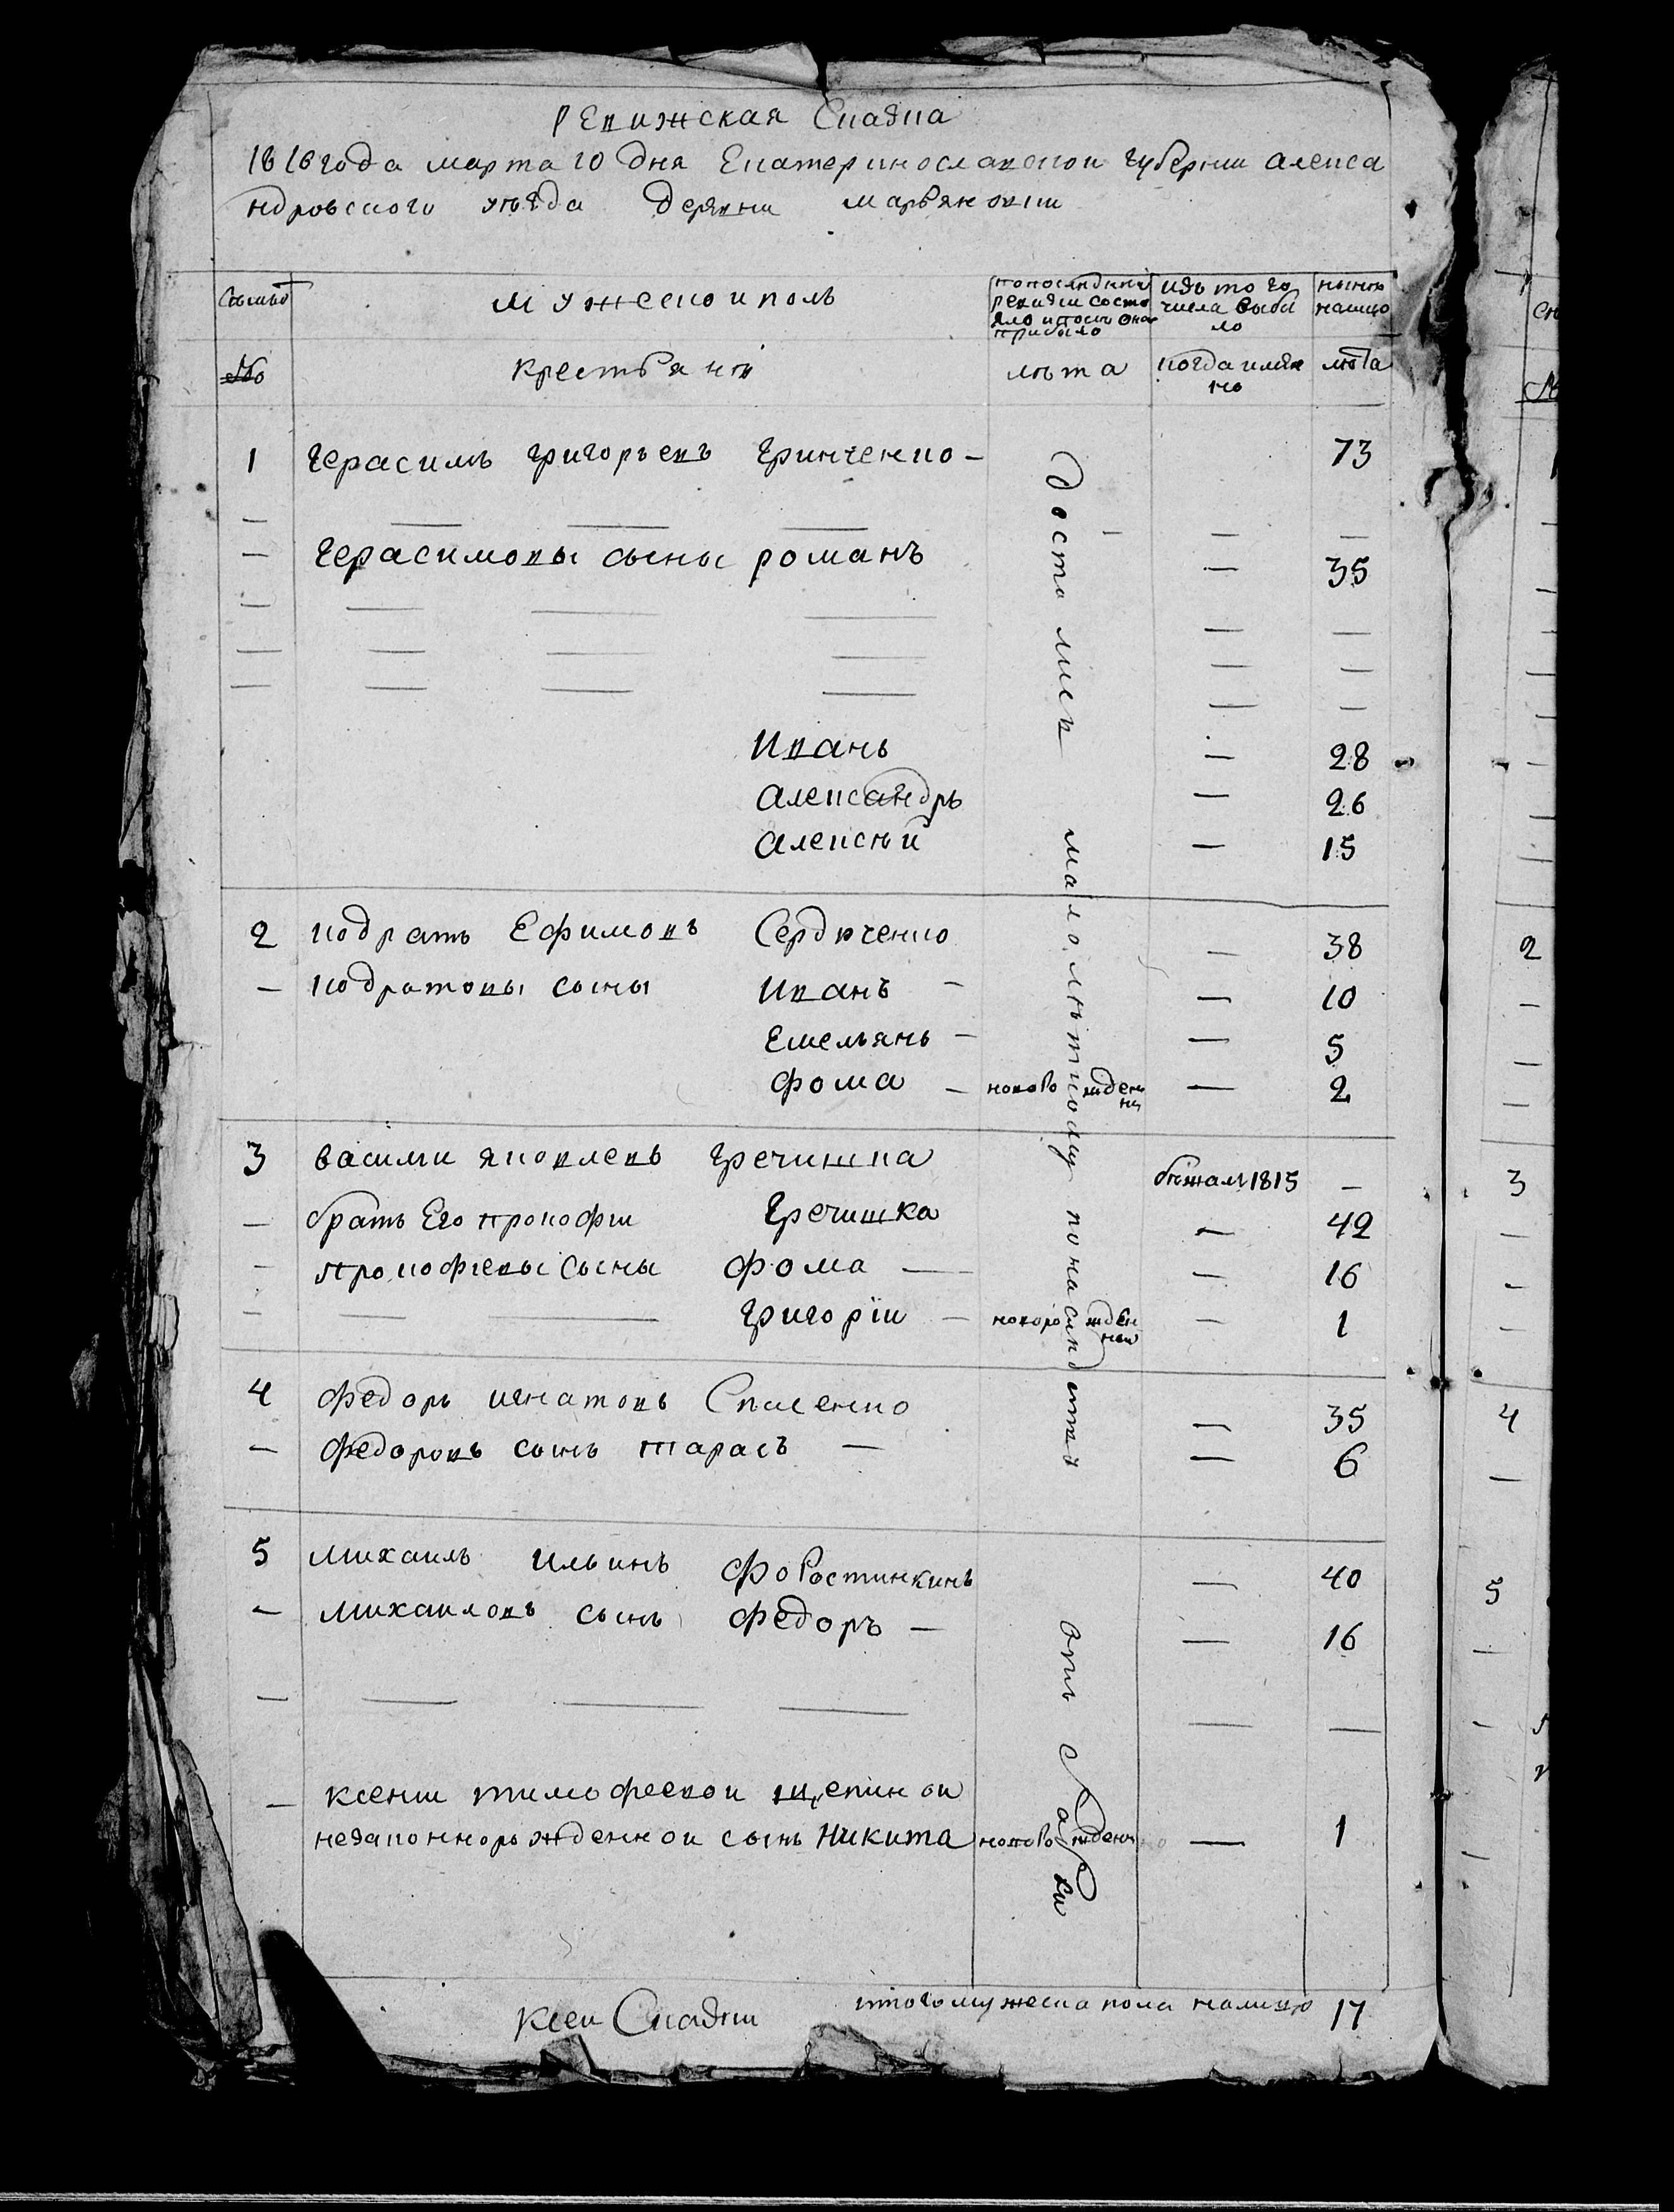 Ревижская Сказка
1816 года марта 10 дня Екатеринославской губернии алекса
ндровского уѣзда деревни марьяновки
Семьи
мужескои полъ
попоследнеи ревизии состо яло ипосле оной прибыло
изъ то го числа выбы ло
нынѣ налицо
№
крестьянѣ
лѣта
когда имян но
лѣта
1 Герасимъ григорьевъ Гринченко — 73
— Герасимовы сыны романъ — 35
Иванъ — 28
Александръ — 26
Алексѣй — 15
2 кодратъ Ефимовъ Сердюченко — 38
— кодратовы сыны Иванъ — — 10
Емельянъ — — 5
фома — новорожденны — 2
3 василии яковлевъ гречишка бѣжалъ 1815 —
— братъ Его прокофии Гречишка — 42
— прокофиевы Сыны фома — — 16
— григоріи — новорожденнои — 1
4 федоръ игнатовъ — 35
— федоровъ сынъ тарасъ — — 6
5 михаилъ ильинъ форостинкинъ — 40
— михаиловъ сынъ федоръ — — 16
— ксении тимофеевои щепинои
незаконнорожденнои сынъ Никита новорожденны — 1
малолѣтному
итого мужеска пола налицо 17
ксеи Сказки